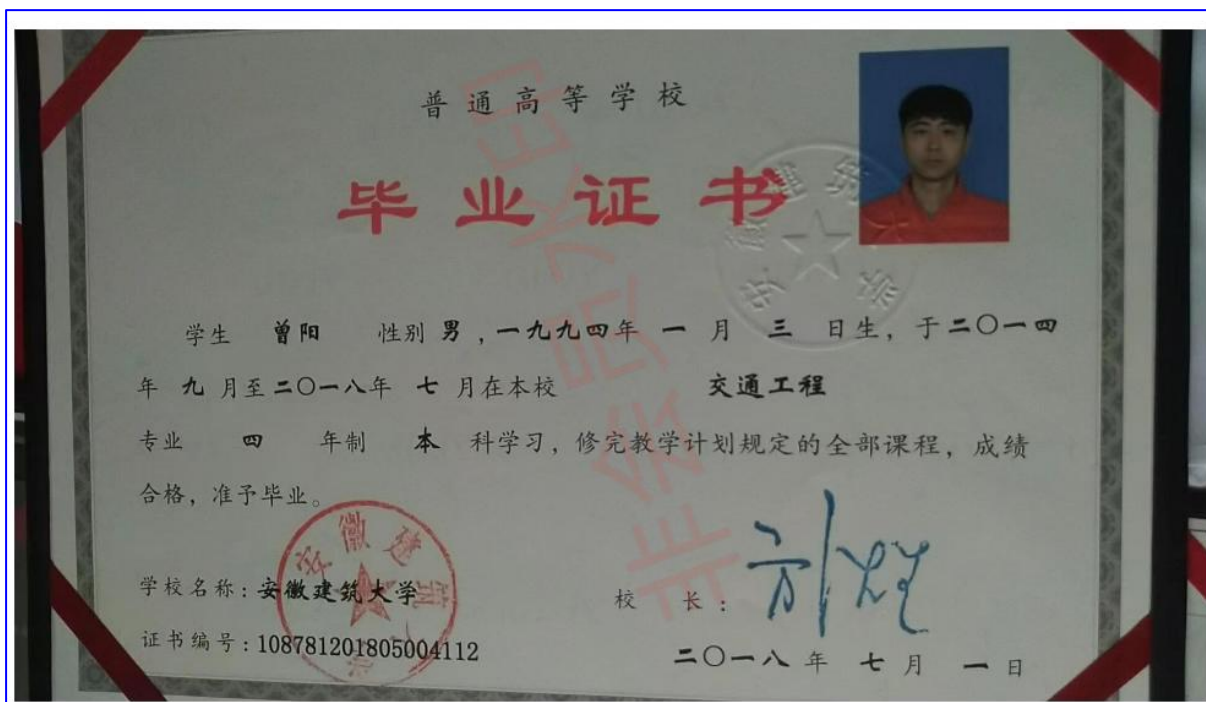 普通高等学校
毕业证书
学生 曾阳 性别 男，一九九四年 一 月 三 日生，于二〇一四
年 九 月至二〇一八年 七 月在本校 交通工程
专业 四 年制 本 科学习，修完教学计划规定的全部课程，成绩
合格，准予毕业。
学校名称：安徽建筑大学
证书编号：108781201805004112
校 长：
二〇一八 年 七 月 一 日
安徽建筑大学
安徽建筑大学